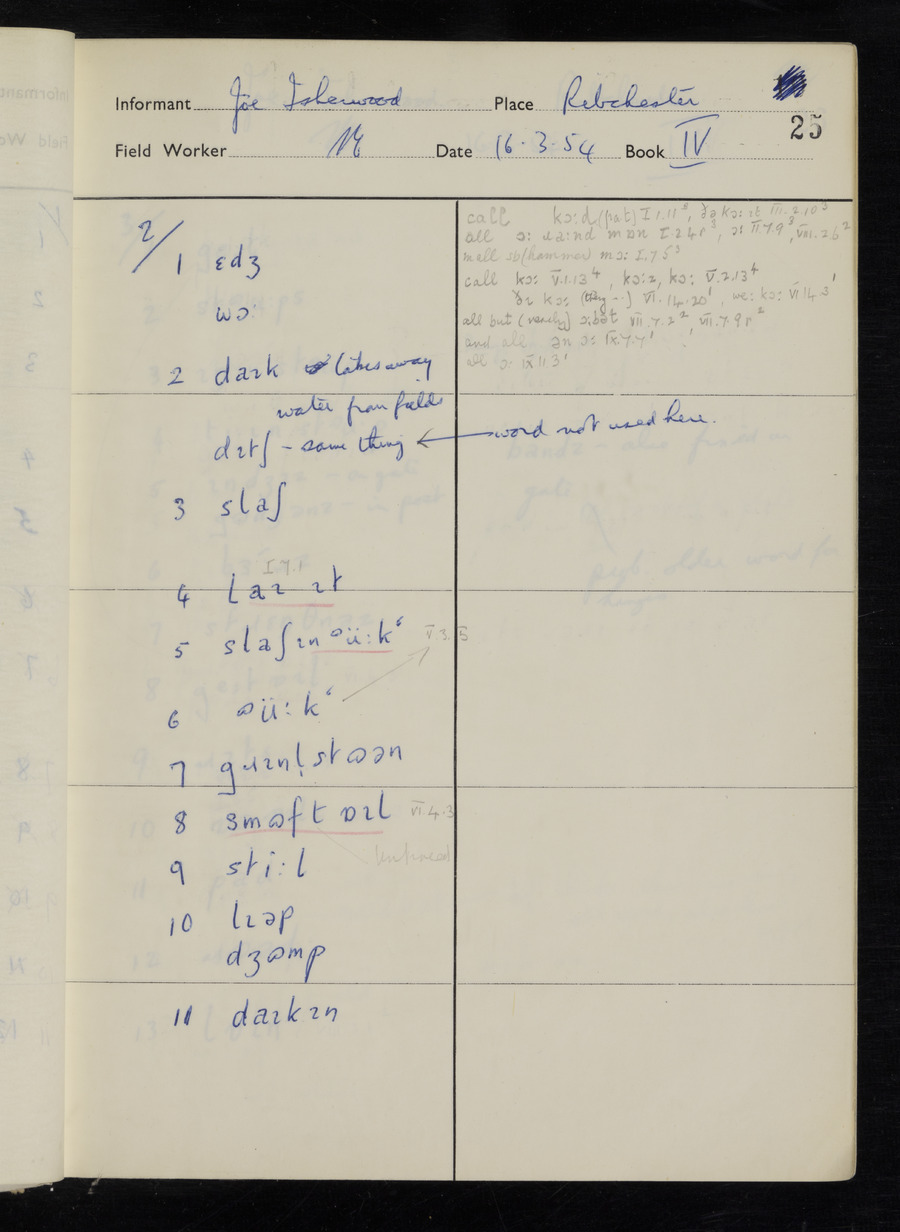 Informant Joe Isherwood Place Ribchester
25
Field Worker Date 16.3.54 Book IV
2/
1 ɛdʒ
wɔ:
2 daɪk takes away
water from fields
dɪtʃ – same thing ← word not used here.
3 slaʃ
I.7.1
4 laɪ ɪt
5 slaʃɪn ʊü:kʻ V.3.5
6 ʊü:kʻ
7 gɹɪnḷstʊən
8 smʊft ɒɪl VI.4.3
9 sti:l
10 lɪəp
dʒʊmp
11 daɪkɪn
call kɔ:d (pat) I.1.11⁵, ðə kɔ: ɪt III.2.10³
all ɔ: ɹa:nd mɒn I.2.4r³, ɔ: II.7.9³, VIII.2.6²
mell sb (hammer) mɔ: I.7.5³
call kɔ: V.1.13⁴, kɔ:z, kɔ: V.2.13⁴
ðɛ kɔ: (they ~) VI.14.20¹, we: kɔ: VI.14.3¹
all but (nearly) ɔ:bət VII.7.2², VII.7.9r²
and all ən ɔ: IX.7.7¹
all ɔ: IX.11.3¹